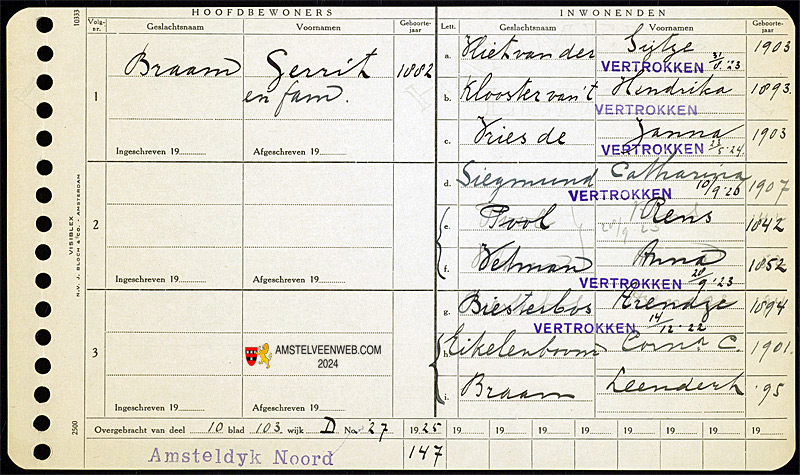 HOOFDBEWONERS
INWONENDEN
10333
Volg-nr.
Geslachtsnaam
Voornamen
Geboorte-jaar
Lett.
Geslachtsnaam
Voornamen
Geboorte-jaar
1
Braam
Gerrit
1882
en fam.
Ingeschreven 19
Afgeschreven 19
2
Ingeschreven 19
Afgeschreven 19
3
Ingeschreven 19
Afgeschreven 19
a. Vliet van der Sijtze 1903
VERTROKKEN 31/8.'23
b. Klooster van 't Hendrika 1893.
VERTROKKEN
c. Vries de Janna 1903
VERTROKKEN 23/5-'24.
d. Siegmund Catharina 1907
VERTROKKEN 10/9-'26
e. Pool Rens 1842
f. Vetman Anna 1852
VERTROKKEN 20/9-'23
g. Biesterbos 1894
VERTROKKEN 14/12-22
h. Eikelenboom C. 1901.
i. Braam Leendert '95
VISIBLEX
N.V. J. BLOCH & CO. AMSTERDAM
2500
AMSTELVEENWEB.COM
2024
Overgebracht van deel 10 blad 103 wijk D No. 27
1925 19 19 19 19 19 19 19 19
Amsteldyk Noord
147